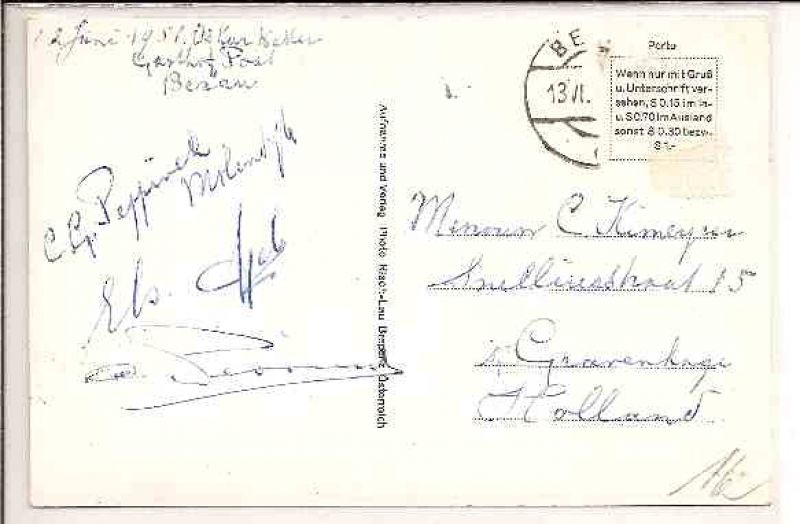 12 Juni 1951. Oskar Keller
Gasthof Post
Bezau
Peppinck
Molendijk
Els.
Aufnahme und Verlag Photo Risch-Lau Bregenz Österreich
BE
13.VI.
Porto
Wenn nur mit Gruß
u. Unterschrift ver-
sehen, S 0.15 im In-
u. S 0.70 im Ausland
sonst S 0.30 bezw.
S 1.-
C.
Snelliusstraat 15
's Gravenhage
Holland